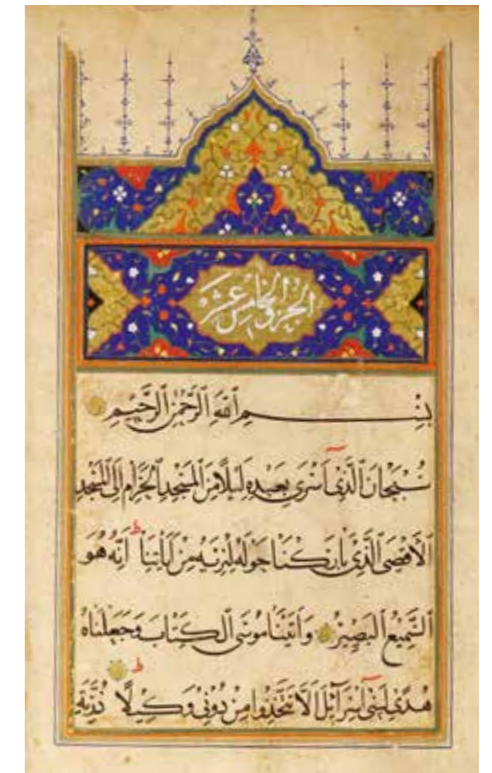 الجزو الخامس عشر
بسم الله الرحمن الرحيم
سبحان الذي أسرى بعبده ليلا من المسجد الحرام إلى المسجد
الأقصى الذي باركنا حوله لنريه من آياتنا ط إنه هو
السميع البصير وآتينا موسى الكتاب وجعلناه
هدى لبني إسرائيل ألا تتخذوا من دوني وكيلا ط ذرية